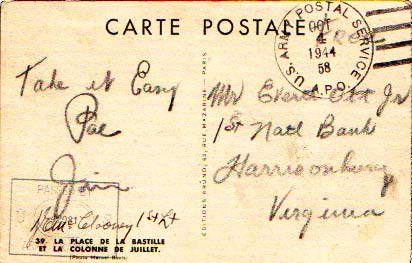 CARTE POSTALE
U.S. ARMY POSTAL SERVICE
OCT
4
1944
58
A.P.O.
Take it Easy
Pal
Jim
PASSED
1st Lt
39. LA PLACE DE LA BASTILLE
ET LA COLONNE DE JUILLET.
ÉDITIONS BRUNO, 43, RUE MAZARINE - PARIS
Mr Everett Jr
1st Natl Bank
Harrisonburg
Virginia